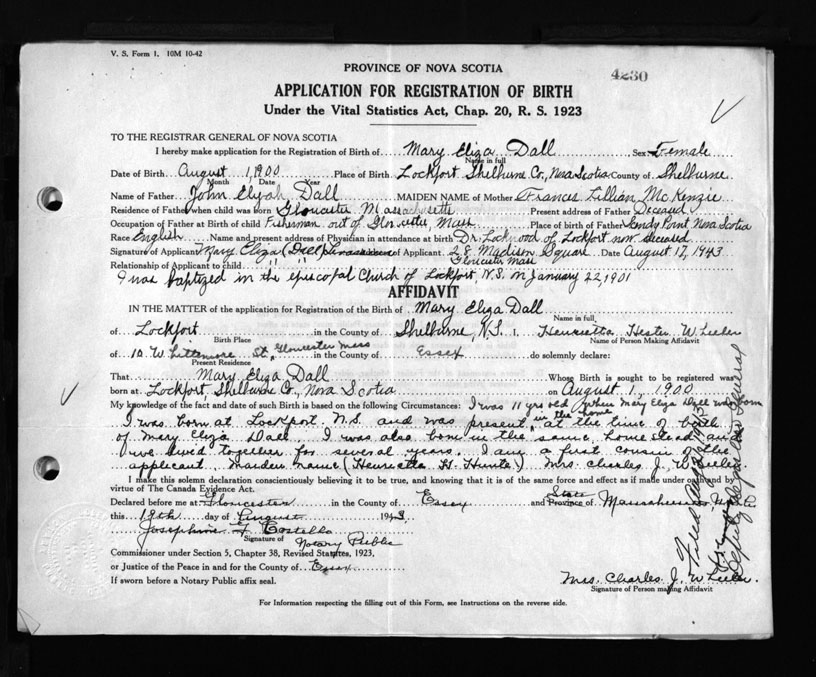 V. S. Form 1. 10M 10-42
PROVINCE OF NOVA SCOTIA
4230
APPLICATION FOR REGISTRATION OF BIRTH
Under the Vital Statistics Act, Chap. 20, R. S. 1923
TO THE REGISTRAR GENERAL OF NOVA SCOTIA
I hereby make application for the Registration of Birth of Mary Eliza Dall Sex Female
Name in full
Date of Birth August 1, 1900 Place of Birth Lockport Shelburne Co., Nova Scotia County of Shelburne
Month Date Year
Name of Father John Elijah Dall MAIDEN NAME of Mother Frances Lillian McKenzie
Residence of Father when child was born Gloucester Massachusetts Present address of Father Deceased
Occupation of Father at Birth of Child Fisherman out of Gloucester, Mass Place of Birth of Father Sandy Point Nova Scotia
Race English Name and present address of Physician in attendance at birth Dr. Lockwood of Lockport now deceased
Signature of Applicant Mary Eliza (Dall) of Applicant 28 Madison Square Date August 17, 1943
Relationship of Applicant to child " " Gloucester Mass
I was baptized in the episcopal Church of Lockport, N.S. on January 22, 1901
AFFIDAVIT
IN THE MATTER of the application for Registration of the Birth of Mary Eliza Dall
Name in full
of Lockport in the County of Shelburne, N.S. I, Henrietta Hester
Birth Place Name of Person Making Affidavit
of 10 St. Gloucester Mass of Essex do solemnly declare:
Present Residence
That Mary Eliza Dall Whose Birth is sought to be registered was
born at Lockport, Shelburne Co., Nova Scotia on August 1, 1900
My knowledge of the fact and date of such Birth is based on the following Circumstances: I was 11 yrs old when Mary Eliza Dall was born
in the home
I was born at Lockport N.S. and was present, at the time of birth
of Mary Eliza Dall. I was also born in the same home stead and
we lived together for several years. I am a first cousin of the
applicant. Maiden name (Henrietta H. ) Mrs. Charles J.
I make this solemn declaration conscientiously believing it to be true, and knowing that it is of the same force and effect as if made under oath and by
virtue of The Canada Evidence Act.
Declared before me at Gloucester in the County of Essex State and Province of Massachusetts
this 18th day of August 1943
Josephine F. Costello
Signature of Notary Public
Commissioner under Section 5, Chapter 38, Revised Statutes, 1923,
or Justice of the Peace in and for the County of Essex
If sworn before a Notary Public affix seal.
Mrs. Charles J.
Signature of Person making Affidavit
For Information respecting the filling out of this Form, see Instructions on the reverse side.
Filed
Deputy Registrar General